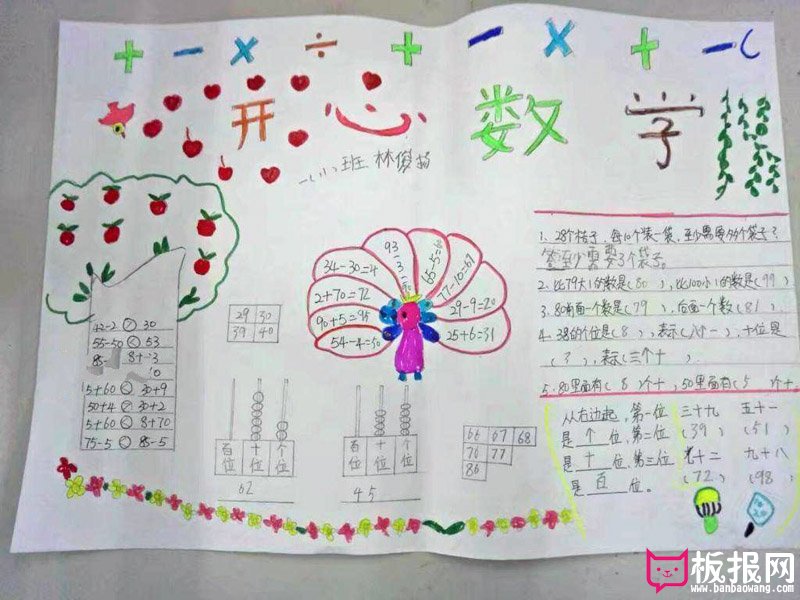 + − × ÷ + − × + −
开心数学
一(1)班 林俊
34-30=4
2+70=72
90+5=95
54-4=50
93-3=90
65-5=60
77-10=67
29-9=20
25+6=31
42-2 > 30
55-50 < 53
5+60 > 30+9
50+4 > 30+2
5+60 < 8+70
75-5 < 85-5
29 30
39 40
百位 十位 个位
62
百位 十位 个位
45
66 67 68
76 77
86
1、28个桔子,每10个装一袋,至少需要多少个袋子?
答:至少需要3个袋子。
2、比79大1的数是(80),比100小1的数是(99)
3、80前面一个数是(79),后面一个数(81)。
4、38的个位是(8),表示(八个一),十位是
(3),表示(三个十)。
5、80里面有(8)个十,50里面有(5)个十。
从右边起,第一位
是 个 位,第二位
是 十 位,第三位
是 百 位。
三十九 五十一
(39) (51)
七十二 九十八
(72) (98)
板报网
www.banbaowang.com